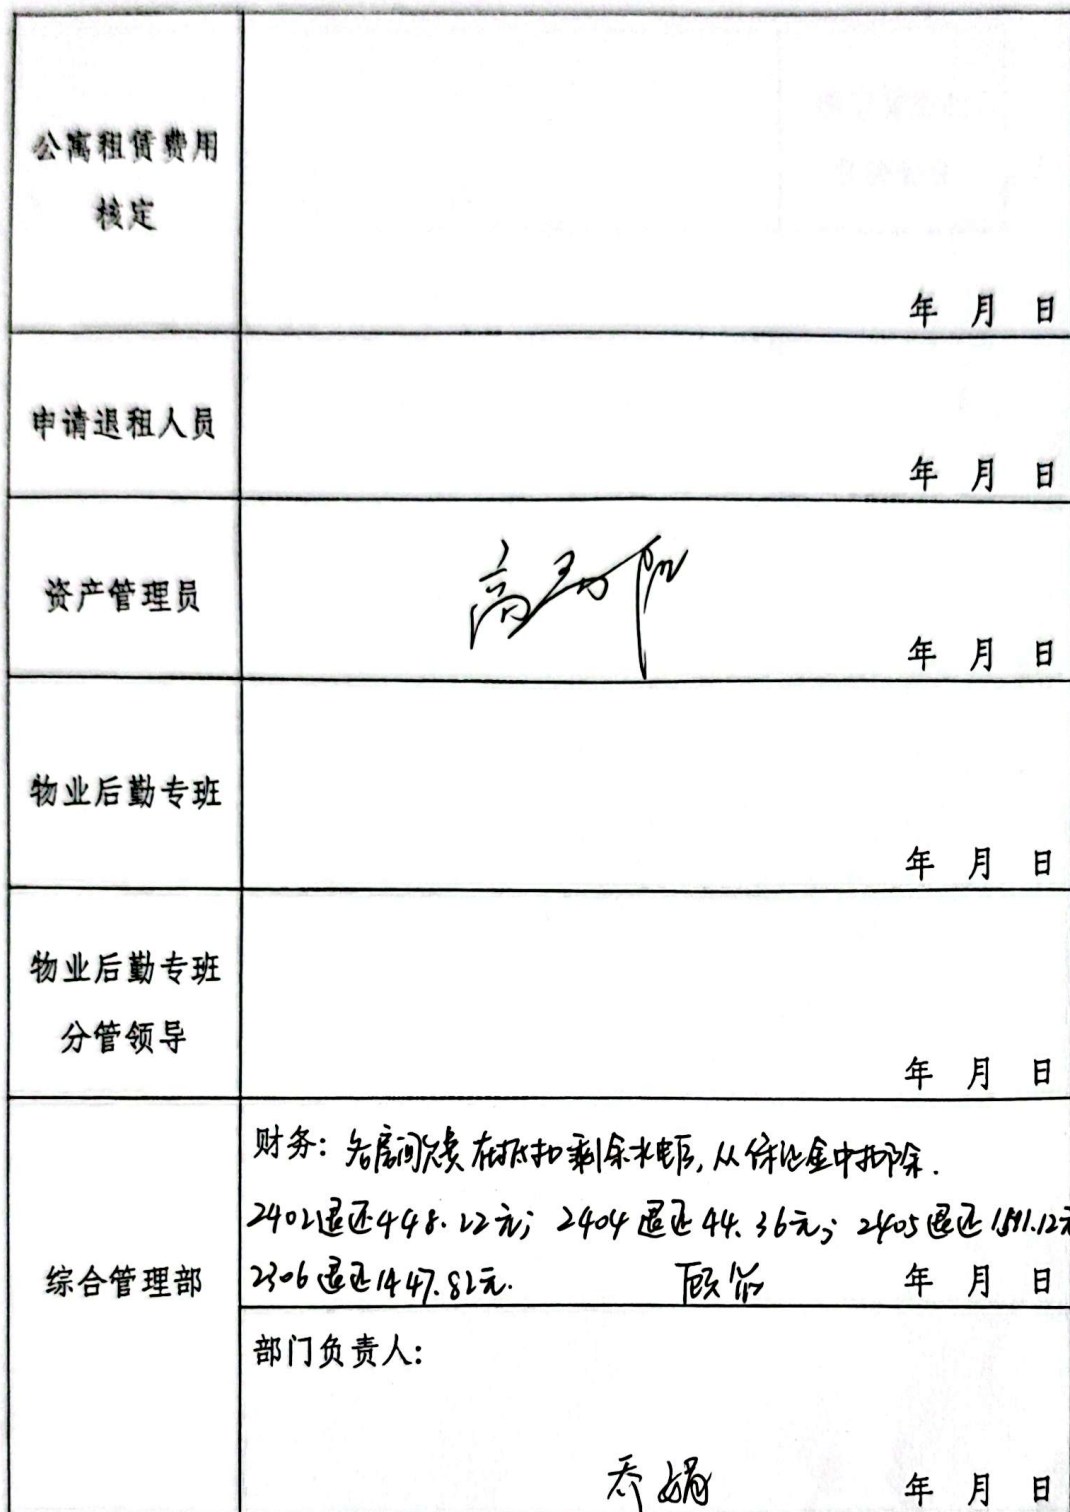 公寓租赁费用
核定
年 月 日
申请退租人员
年 月 日
资产管理员
高
年 月 日
物业后勤专班
年 月 日
物业后勤专班
分管领导
年 月 日
综合管理部
财务: 各房间欠费在抵扣剩余水电后,从保证金中扣除.
2402退还448.22元; 2404退还44.36元; 2405退还1511.12元
2306退还1447.82元. 顾
年 月 日
部门负责人:
乔娟
年 月 日